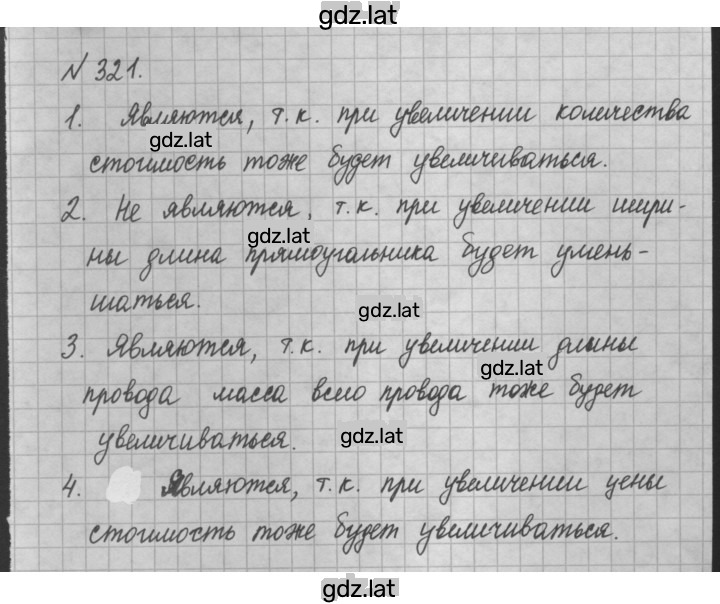 gdz.lat
N 321.
1. Являются, т.к. при увеличении количества
gdz.lat
стоимость тоже будет увеличиваться.
2. Не являются, т.к. при увеличении шири-
gdz.lat
ны длина прямоугольника будет умень-
шаться.
gdz.lat
3. Являются, т.к. при увеличении длины
gdz.lat
провода масса всего провода тоже будет
увеличиваться.
gdz.lat
4. Являются, т.к. при увеличении цены
стоимость тоже будет увеличиваться.
gdz.lat